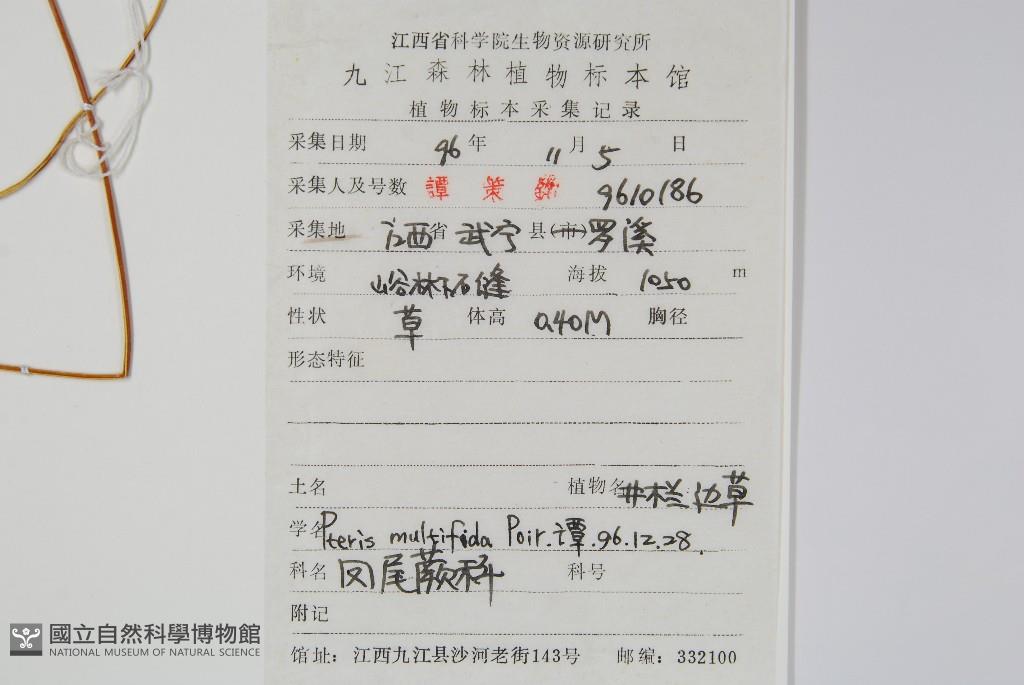 江西省科学院生物资源研究所
九江森林植物标本馆
植物标本采集记录
采集日期 96年 11月 5 日
采集人及号数 譚策銘 9610186
采集地 江西省 武宁 县(市)罗溪
环境 峪林下石缝 海拔 1050 m
性状 草 体高 0.40M 胸径
形态特征
土名 植物名 井栏边草
学名 Pteris multifida Poir. 譚.96.12.28.
科名 凤尾蕨科 科号
附记
馆址：江西九江县沙河老街143号 邮编：332100
國立自然科學博物館
NATIONAL MUSEUM OF NATURAL SCIENCE